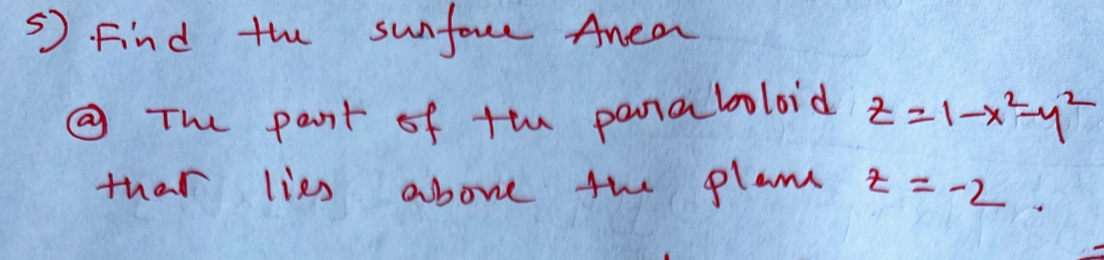 5) Find the surface Area
ⓐ The part of the paraboloid z = 1-x²-y²
that lies above the plane z = -2.